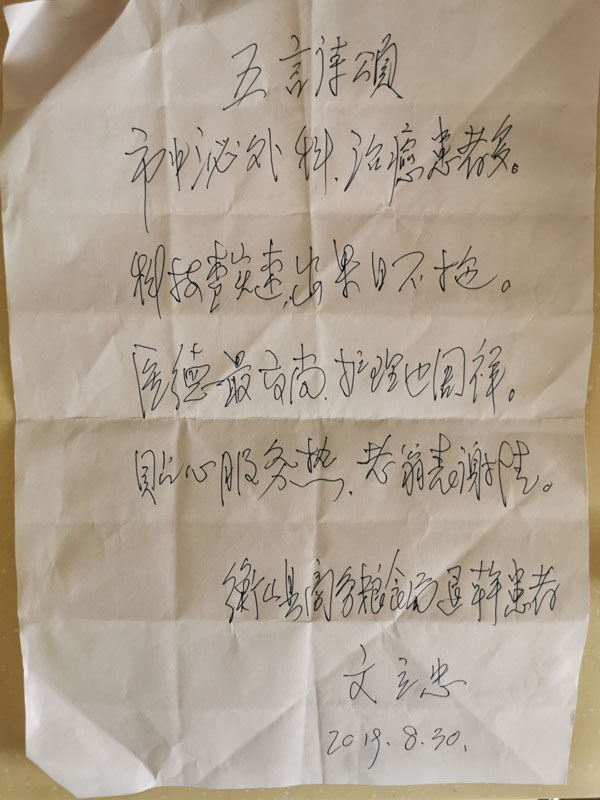 五言诗頌
市中泌外科，治癒患者多。
科技真实速，出果日不拖。
医德最高尚，护理也周祥。
贴心服务热，老翁表谢情。
衡山县商务粮食局退幹患者
文立忠
2019.8.30.